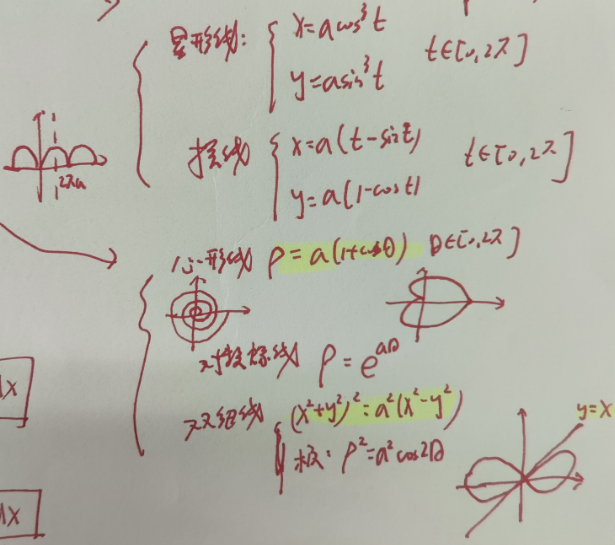 星形线: { x=acos³t
y=asin³t t∈[0,2π]
2πa
摆线 { x=a(t-sint)
y=a(1-cost) t∈[0,2π]
心形线 ρ=a(1+cosθ) θ∈[0,2π]
对数螺线 ρ=e^{aθ}
双纽线 { (x²+y²)²=a²(x²-y²)
极: ρ²=a²cos2θ
y=x